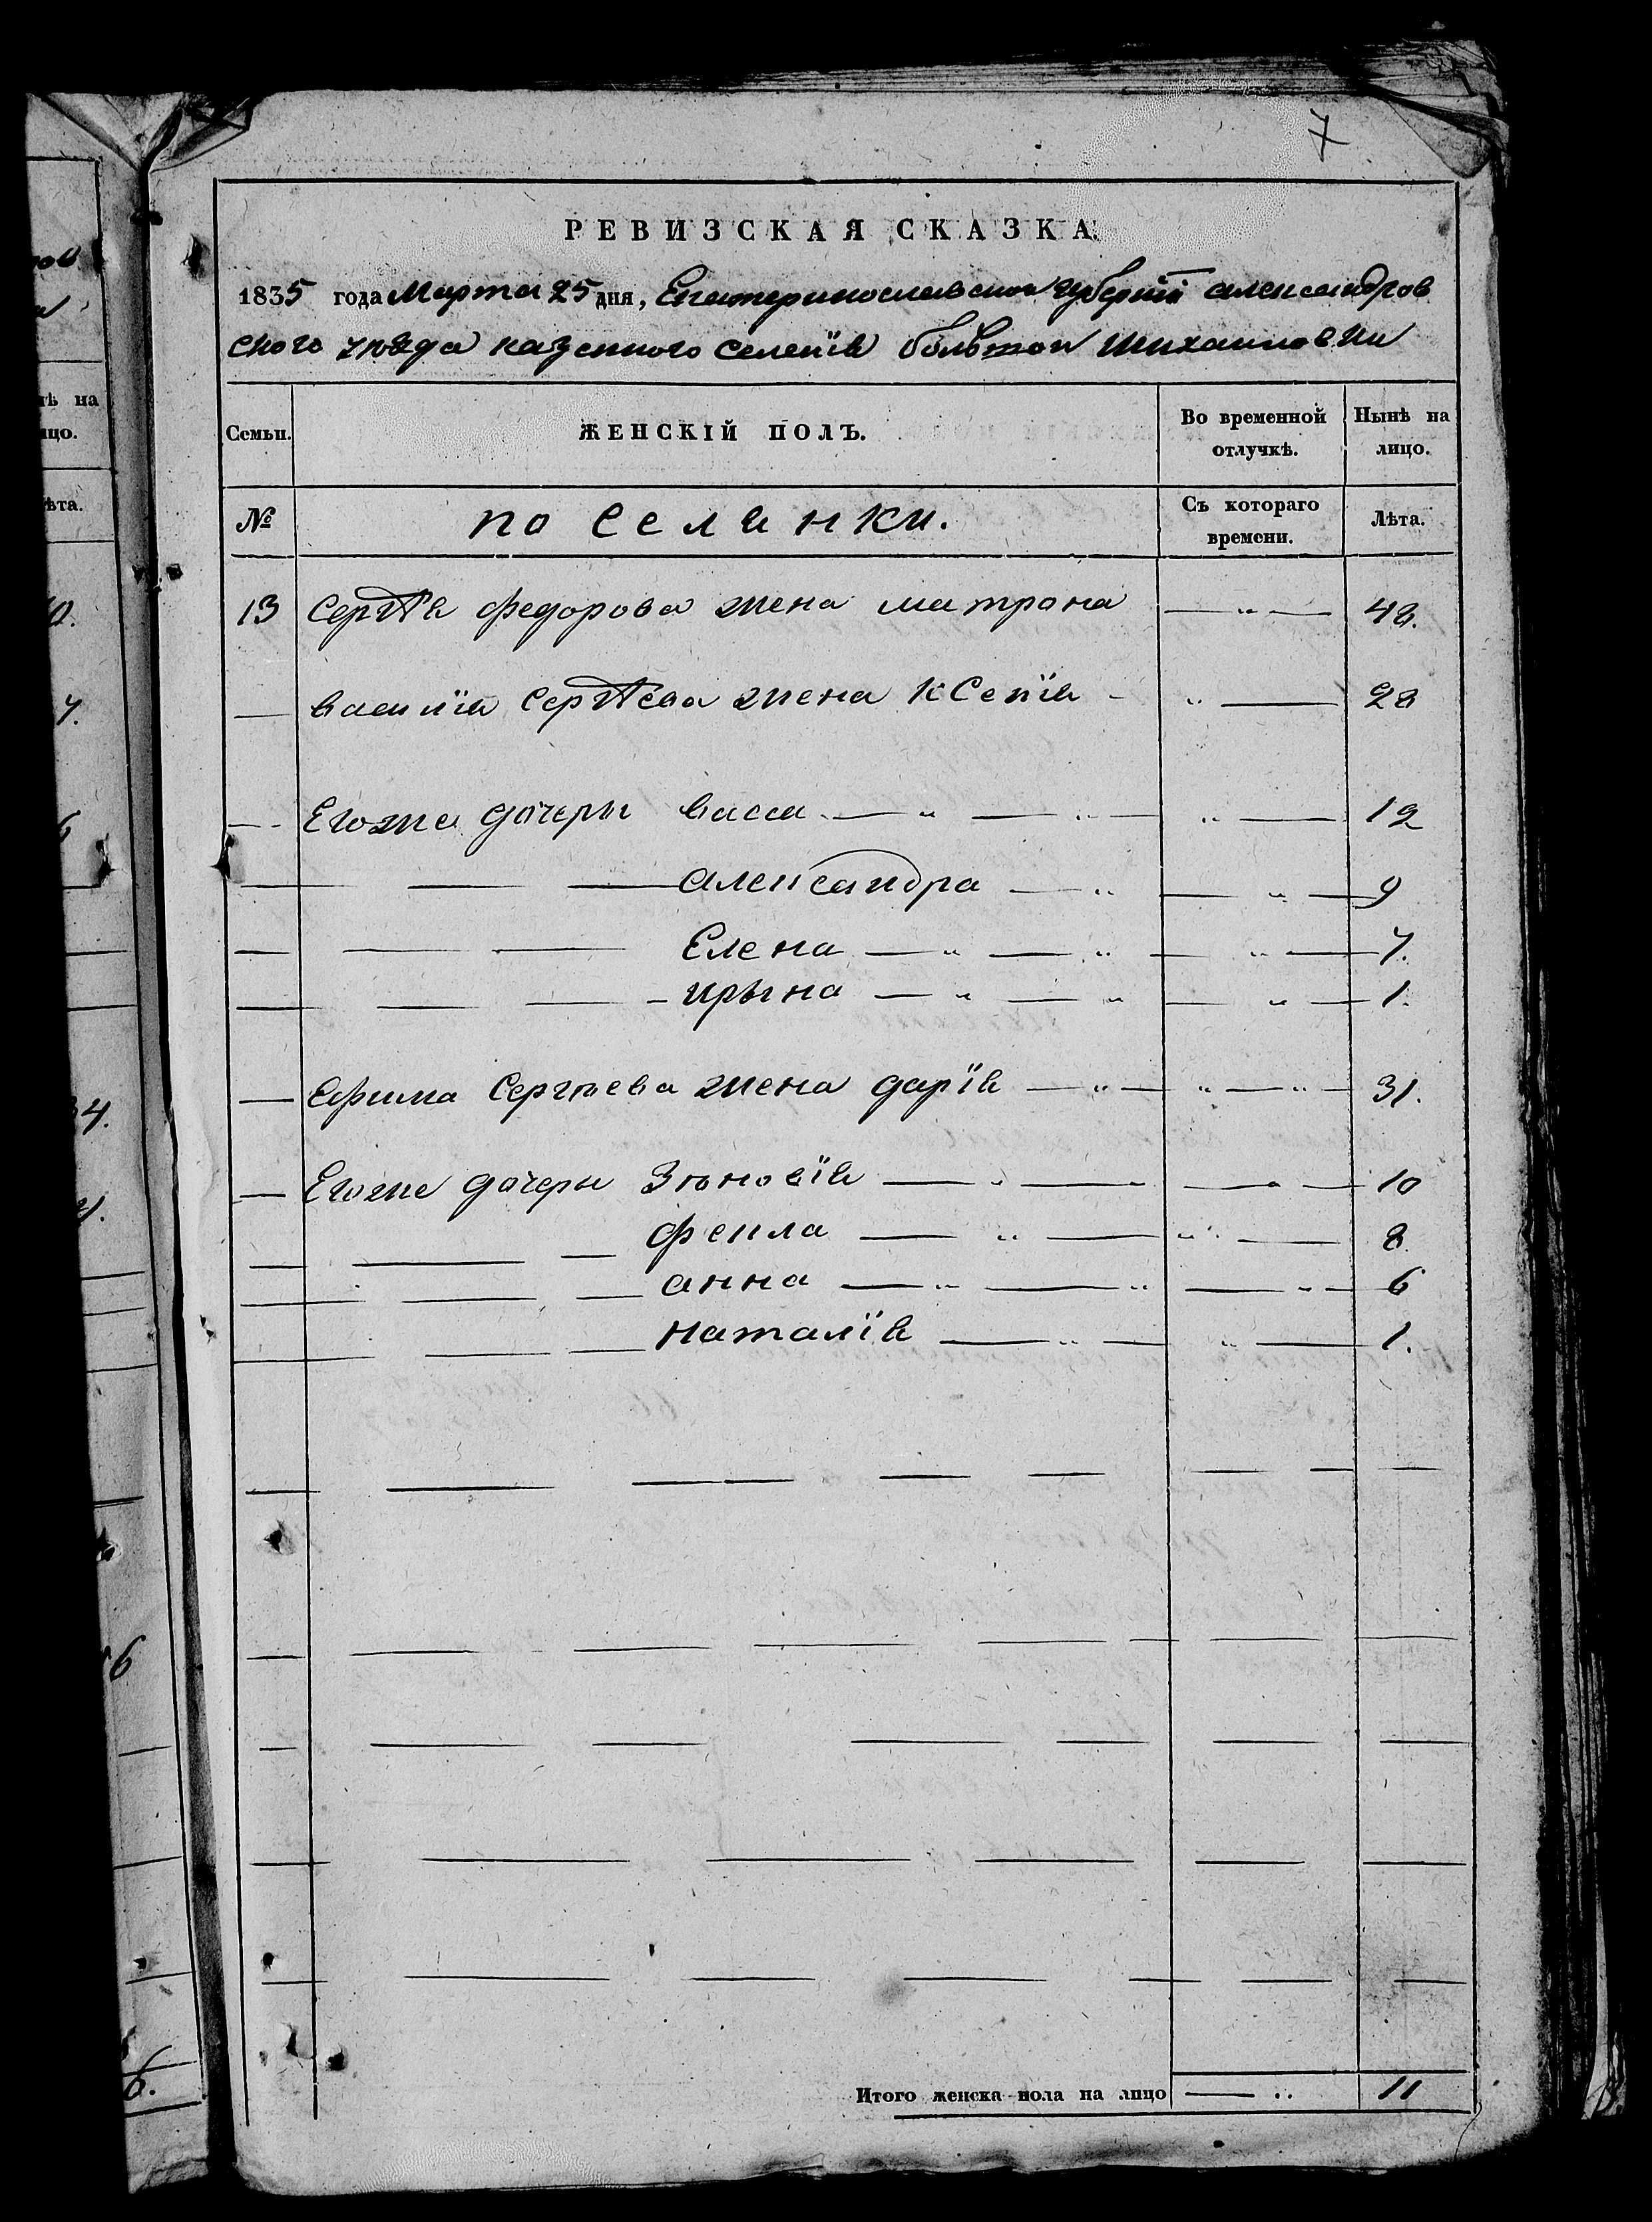 7
РЕВИЗСКАЯ СКАЗКА.
1835 года Марта 25 дня, Екатеринославской губернїи александров
ского уѣзда казенного селенїя болшой михайловки
Семьи. ЖЕНСКІЙ ПОЛЪ. Во временной отлучкѣ. Нынѣ на лицо.
№ поселянки. Съ котораго времени. Лѣта.
13 Сергѣя федорова жена матрона — „ — 48.
— василїя Сергѣева жена кСенїя - „ — 28
— Егоже дочери васса — „ — „ — „ — 12
— — — александра — „ — „ — 9
— — — Елена — „ — „ — „ — 7.
— — — ирына — „ — „ — „ — 1.
— Ефима Сергѣева жена дарїя — „ — „ — „ — 31.
— Егоже дочери Зѣновїя — „ — „ — „ — 10
— — — фекла — „ — „ — 8.
— — — анна — „ — „ — „ — 6
— — — наталїя — „ — „ — 1.
Итого женска пола на лицо — „ 11
ѣ на
ицо.
ѣта.
7.
4.
6
6.